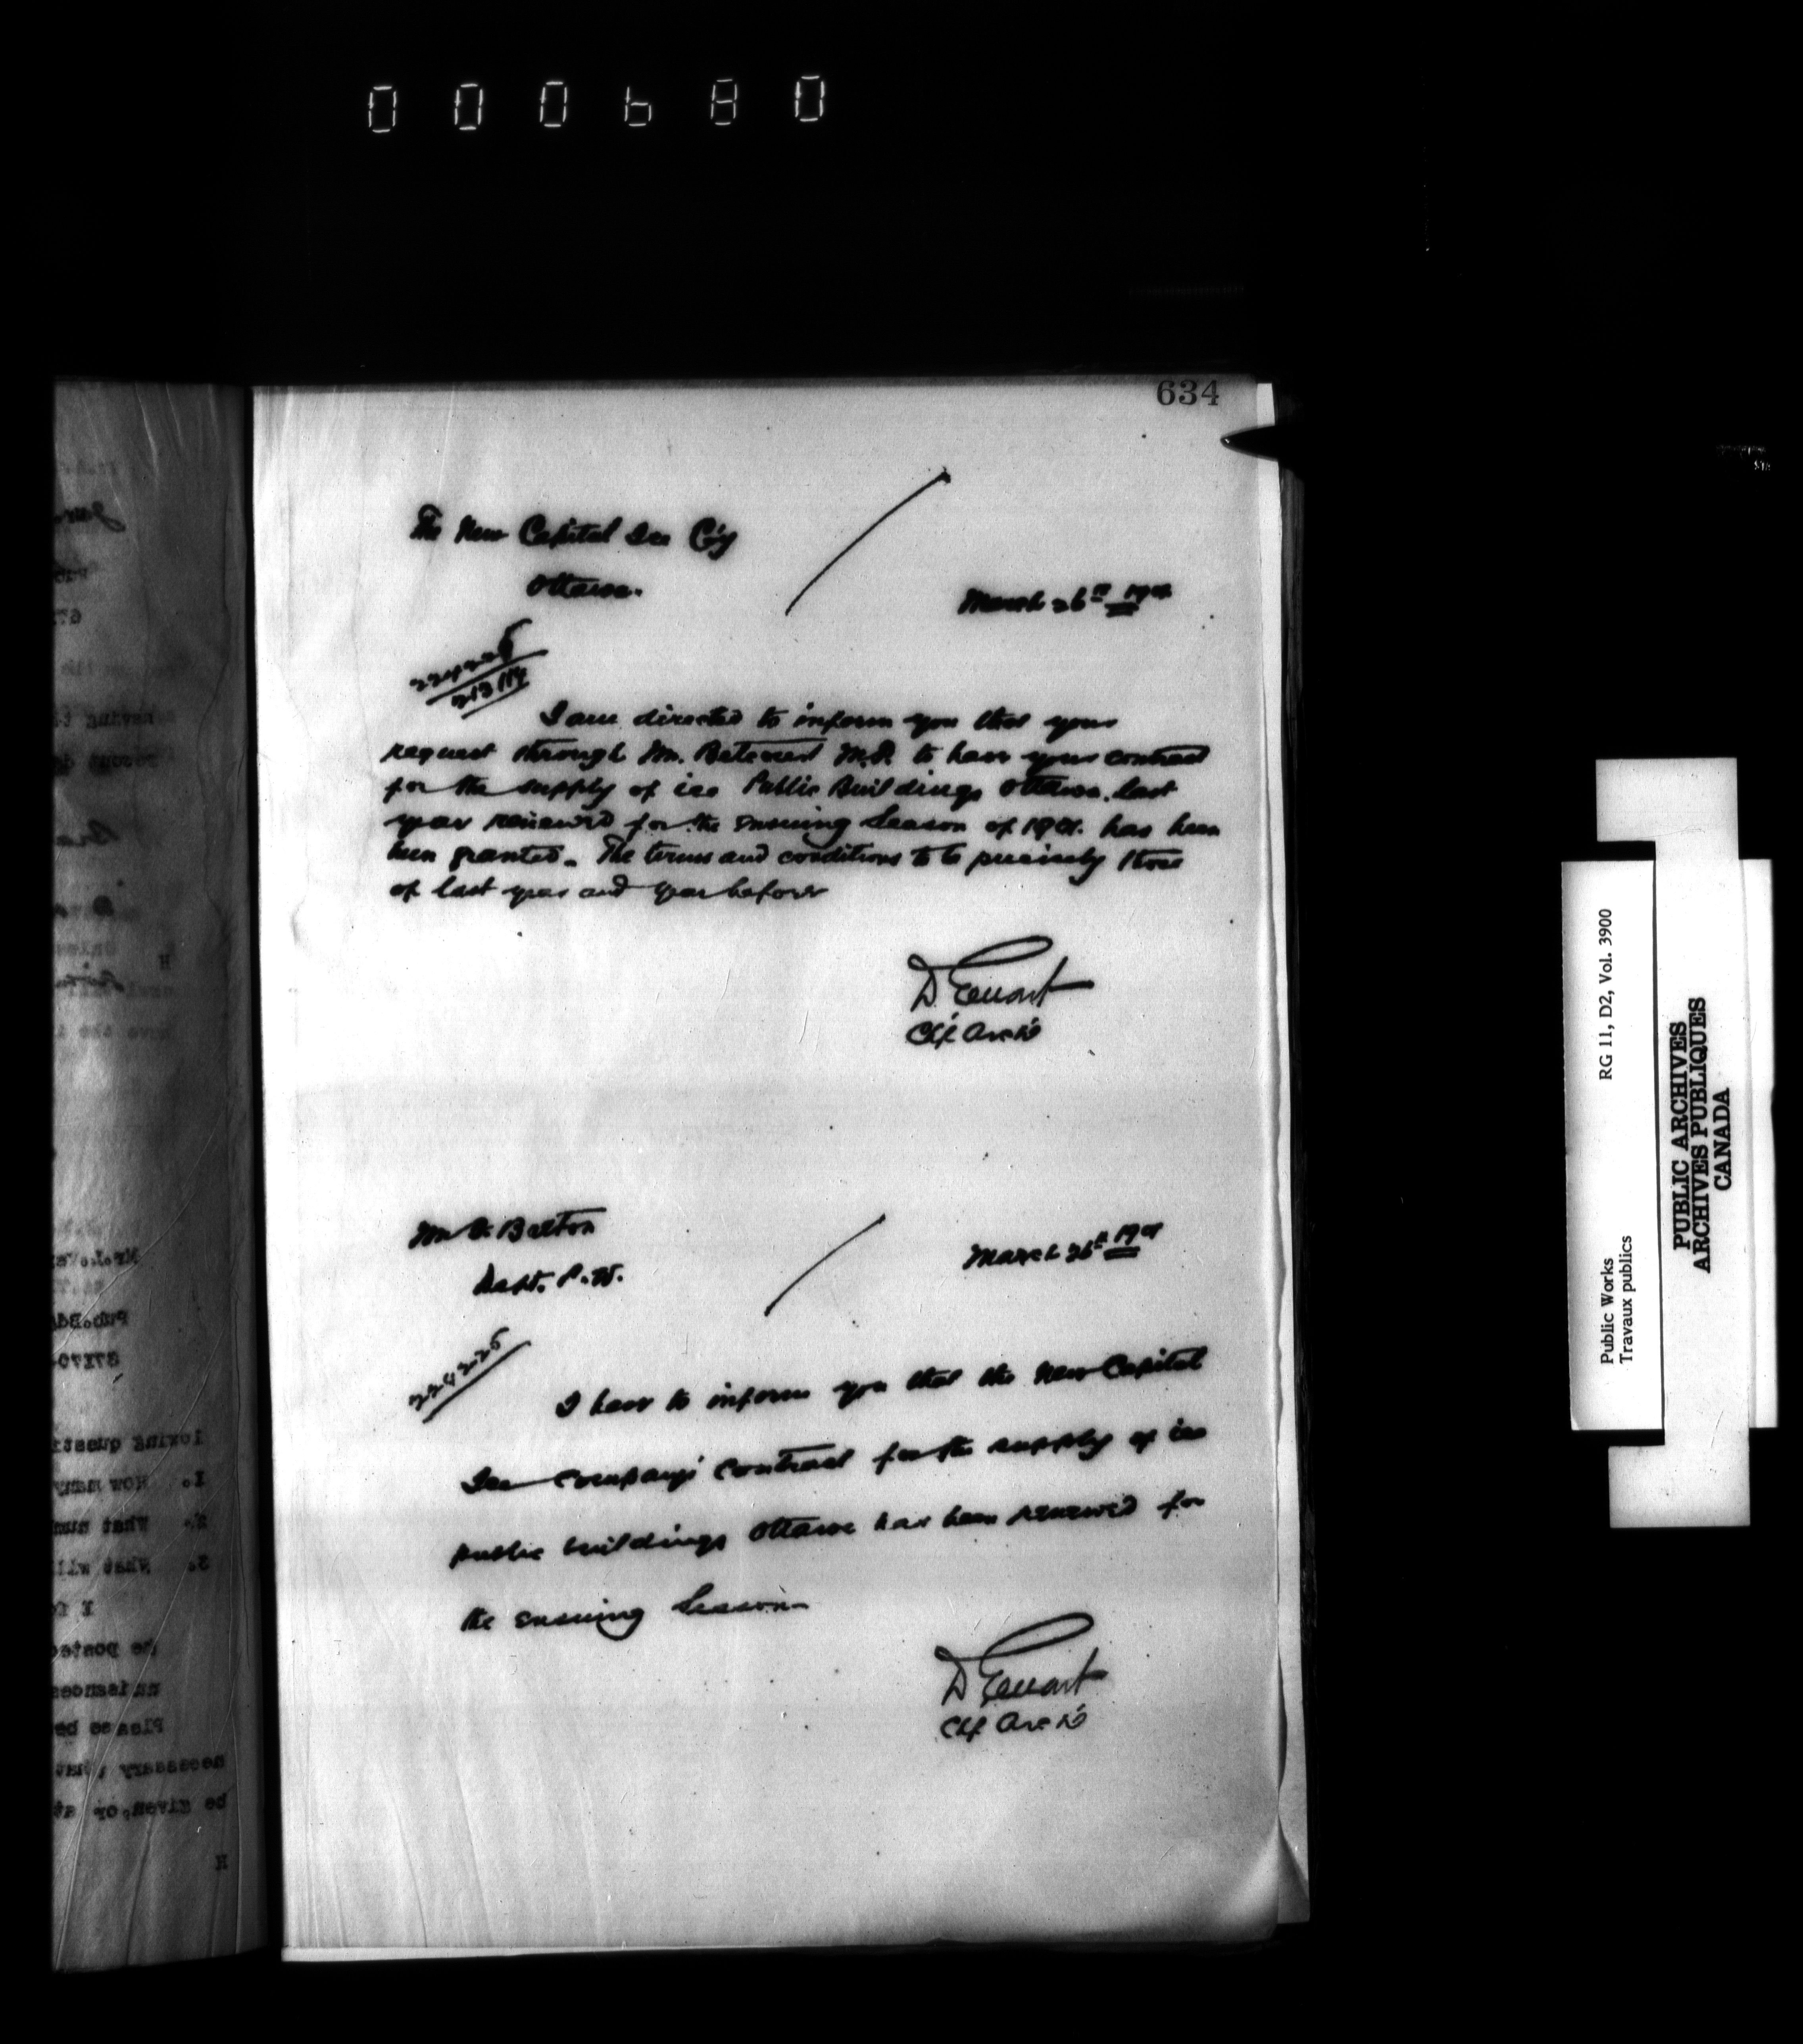 000680
634
The New Capital Ice Co'y
Ottawa.
March 26th 1901
224225
213114
I am directed to inform you that your
request through Mr. Belcourt M.P. to have your contract
for the supply of ice Public Buildings Ottawa last
year renewed for the ensuing Season of 1901. has been
been granted. The terms and conditions to be precisely those
of last year and year before
D Ewart
Chf Arch't
Mr Belton
Dept. P.W.
March 26th 1901
224225
I have to inform you that the New Capital
Ice Company's Contract for the supply of ice
public buildings Ottawa has been renewed for
the ensuing Season.
D Ewart
Chf Arch't
Public Works RG 11, D2, Vol. 3900
Travaux publics
PUBLIC ARCHIVES
ARCHIVES PUBLIQUES
CANADA